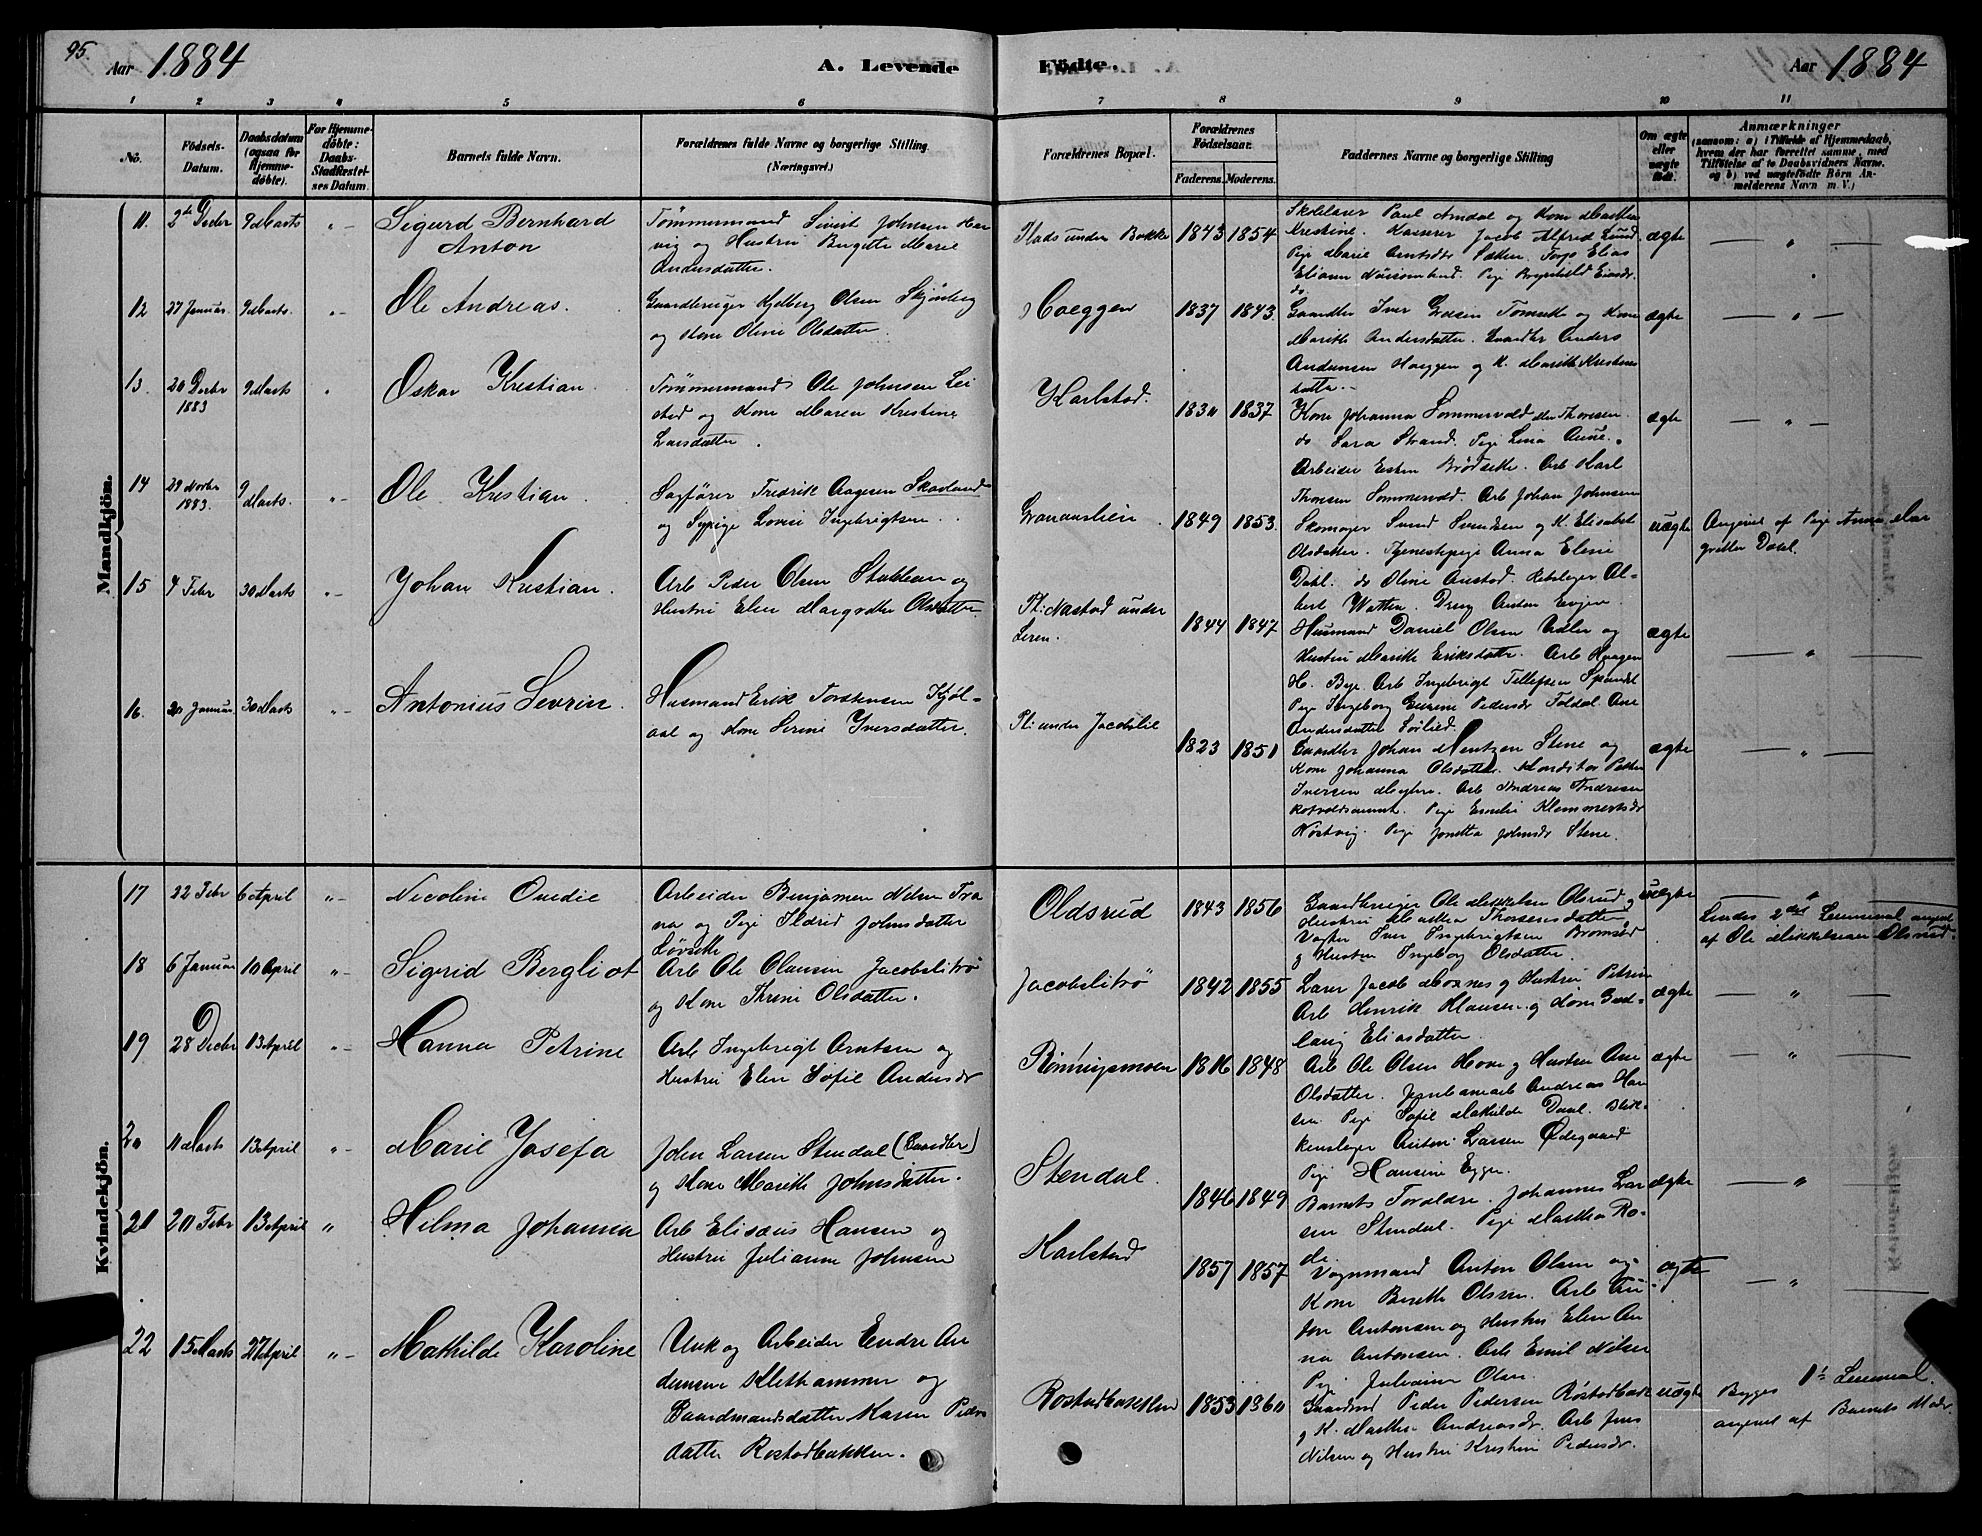 95.
Aar 1884
A. Levende
Fødte.
Aar 1884
1 2 3 4 5 6 7 8 9 10 11
No.
Fødsels-
Datum.
Daabsdatum
(ogsaa for
Hjemme-
døbte).
For Hjemme-
døbte:
Daabs-
Stadfæstel-
ses Datum.
Barnets fulde Navn.
Forældrenes fulde Navne og borgerlige Stilling
(Næringsvei.)
Forældrenes Bopæl.
Forældrenes
Fødselsaar.
Faderens. Moderens.
Faddernes Navne og borgerlige Stilling
Om ægte
eller
uægte
født.
Anmærkninger
(saasom: a) i Tilfælde af Hjemmedaab,
hvem der har forrettet samme, med
Tilføielse af to Daabsvidners Navne,
og b) ved uægtefødte Børn An-
melderens Navn m. V.)
Mandkjön.
11. 2de Decbr 9 Marts " -
Sigurd Bernhard
Anton
Tømmermand Sivert Johnsen
vig og Hustru Birgitte Marie
Andersdatter.
Plads under Bakke 1843 1854
Skolelærer Paul Arndal og Kone Martha
Kristine. Kasserer Jacob Alfred Lund.
Pige Marie Arntsdtr
ægte
— " —
12 27 Januar. 9 Marts. " -
Ole Andreas.
Gaardbruger Kjelberg Olsen Skjønberg
og Kone Oline Olsdatter.
Hoeggen 1837 1843.
Gaardbr Iver Olsen og Kone
Marith Andersdatter. Gaardbr Anders
Andersen Hoeggen og K. Marith Kristens
datter.
ægte
— " —
13. 20 Decbr
1883
9 Marts "
Oskar Kristian.
Tømmermand Ole Johnsen Lei
stad og Kone Maren Kristine
Larsdatter.
Karlstad. 1830 1837
Kone Johanna Sommervold Thoresen.
do Sara Strand. Pige Lina Aune.
Arbeider Esten Brødseth. Arb Karl
Thoresen Sommervold. Arb Johan Johnsen
ægte
— " —
14 29 Novbr
1883.
9
Marts " -
Ole Kristian.
Sagfører Fredrik Aagesen Skavland
og Sypige Lovise Ingebrigtsen.
Granaaslien. 1849 1853.
Skomager Svend Svendsen og K. Elisabet
Olsdatter. Tjenestepige Anna Eline
Dahl. do Oline Austad. Rebslager Al-
bert Watten. Dreng Anton
uægte
Angivet af Pige Anna Mar
grethe Dahl.
15 4 Febr 30 Marts " -
Johan Kristian.
Arb Peder Olsen Stubban og
Hustru Elen Margrethe Olsdatter.
Pl: Nastad under
Leren.
1844 1847
Husmand Daniel Olsen og
Hustru Marith Eriksdatter. Arb Haagen
H. Bye. Arb Ingebrigt Tillefsen
Pige Ingeborg Pedersdr
Andersdatter
ægte
— " —
16. 20 Januar. 30 Marts " -
Antonius Sevrin.
Husmand Erik Torstensen Kjøl-
aal og Kone Serine Iversdatter.
Pl: under Jacobslie 1823 1851
Gaardbr Johan Mentzen Stene og
Kone Johanna Olsdatter. Konditor Petter
Iversen Arb Andreas Andersen
Pige Emelie Klemmertsdr
Pige Jonetta Johnsdr Stene.
ægte
— " —
Kvindekjön.
17 22 Febr 6 April " -
Nicoline Ovedie
Arbeider Benjamin Nilsen Tra
na og Pige Ildrid Johnsdatter
Løvseth
Oldsrud 1843 1856
Gaardbruger Ole Mikkelsen Olsrud og
Hustru Martha Thoresensdatter
Vogter Iver Ingebrigtsen Bromstad
og Hustru Ingeborg Olsdatter.
uægte
Lindes 2det Leiermaal angivet
af Ole Mikkelsen Olsrud.
18 6 Januar 10 April " -
Sigrid Bergliot
Arb Ole Olausen Jacobslitrø
og Kone Thrine Olsdatter.
Jacobslitrø 1842 1855
Lærer Jacob Moxnes og Hustru Petrine
Arb Henrik Klausen og Kone Gud-
laug Eliasdatter.
ægte
— " —
19 28 Decbr 13 April " -
Hanna Petrine
Arb Ingebrigt Arntsen og
Hustru Elen Sofie Andersdr
Rønningsmoen 1846 1848
Arb Ole Olsen Hove og Hustru Ane
Olsdatter. Jernbanearb Andreas Han
sen. Pige Sofie Mathilde Daal. Blik-
kenslager Anton Larsen Ødegaard
Pige Hansine Eggen.
ægte
— " —
20 11 Marts 13 April " -
Marie Josefa
John Larsen Stendal (Gaardbr)
og Kone Marith Johnsdatter.
Stendal. 1846 1849
Barnets Forældre. Johannes Lar
sen Stendal. Pige Martha Ro-
de
ægte
— " —
21 20 Febr 13 April "
Hilma Johanna
Arb Elisæus Hansen og
Hustru Julianne Johnsen
Karlstad 1857 1857
Vognmand Anton Olsen og
Kone Berethe Olsen. Arb An-
ton Antonsen og Hustru Elen An
na Antonsen. Arb Emil Nilsen
Pige Julianne Olsen.
ægte
— " —
22 15 Marts 27 April " -
Mathilde Karoline
Unk og Arbeider Endre An
dersen Klethammer og
Gaardmandsdatter Karen Peders
datter Rostadbakken.
Rostadbakken 1853 1860
Gaardmd Peder Pedersen Rostadbak
og K. Marthe Andreasdr. Arb Jens
Nilsen og Hustru Kristine Pedersdr.
uægte
Begges 1ste Leiermaal.
angivet af Barnets Moder.